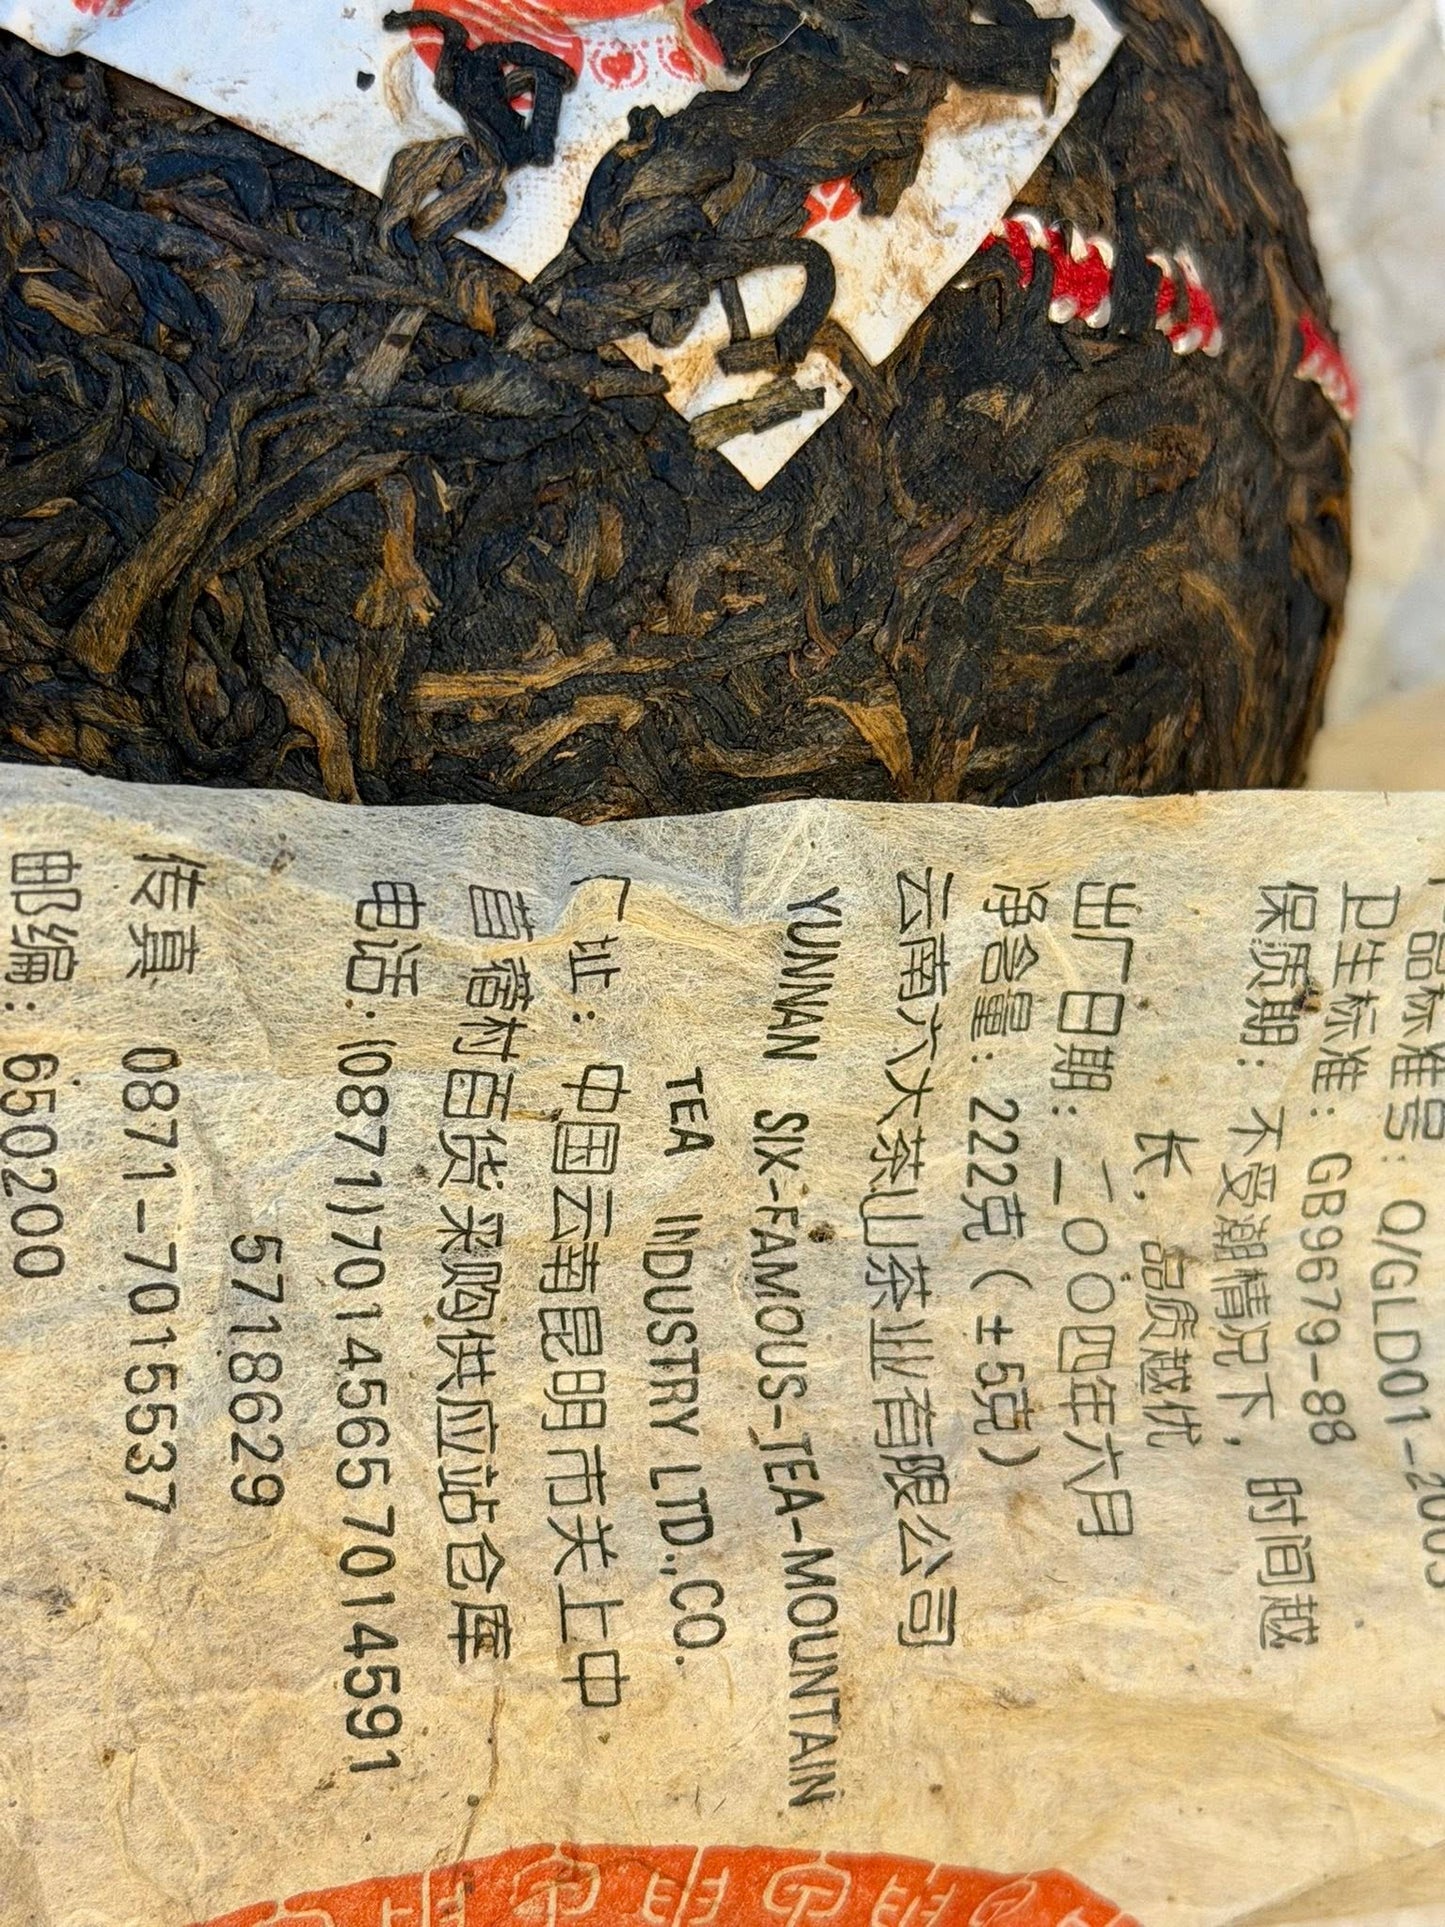 品标准号：Q/GLD01-2003
卫生标准：GB9679-88
保质期：不受潮情况下，时间越
长，品质越优
出厂日期：二〇〇四年六月
净含量：222克（±5克）
云南六大茶山茶业有限公司
YUNNAN SIX-FAMOUS-TEA-MOUNTAIN
TEA INDUSTRY LTD.,CO.
厂址：中国云南昆明市关上中
苜蓿村百货采购供应站仓库
电话:(0871)7014565 7014591
5718629
传真 0871-7015537
邮编：650200